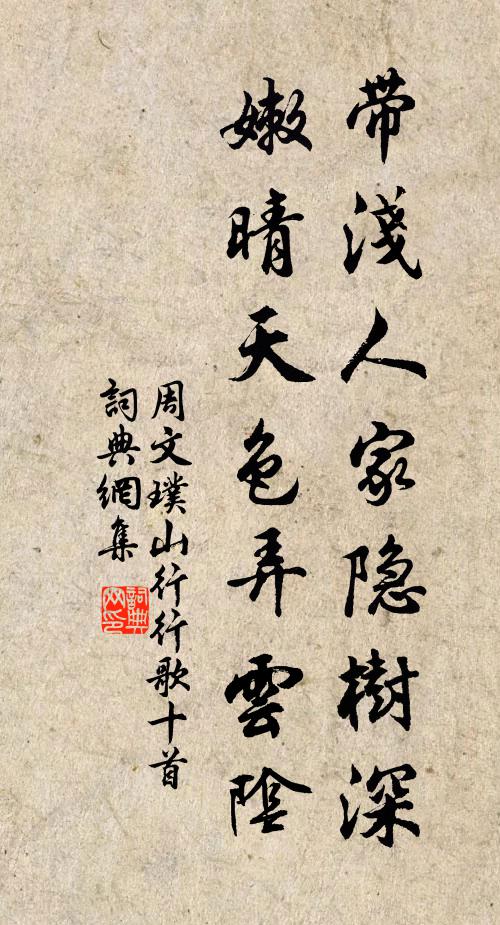 带淺人家隐樹深
嫩晴天色弄雲陰
周文璞山行行歌十首
詞典網集
詞典
网印